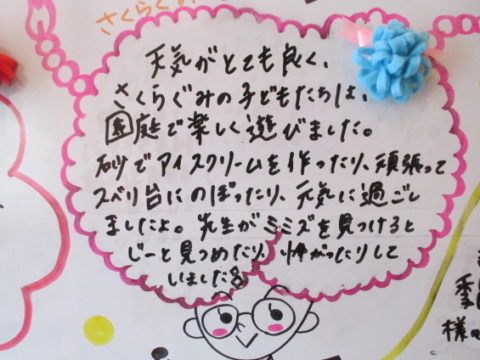 さくらぐみ
天気がとても良く、
さくらぐみの子どもたちは、
園庭で楽しく遊びました。
砂でアイスクリームを作ったり、頑張って
スベリ台にのぼったり、元気に過ごし
ましたよ。先生がミミズを見つけると
じーと見つめたり、怖がったりして
いました
季
様の